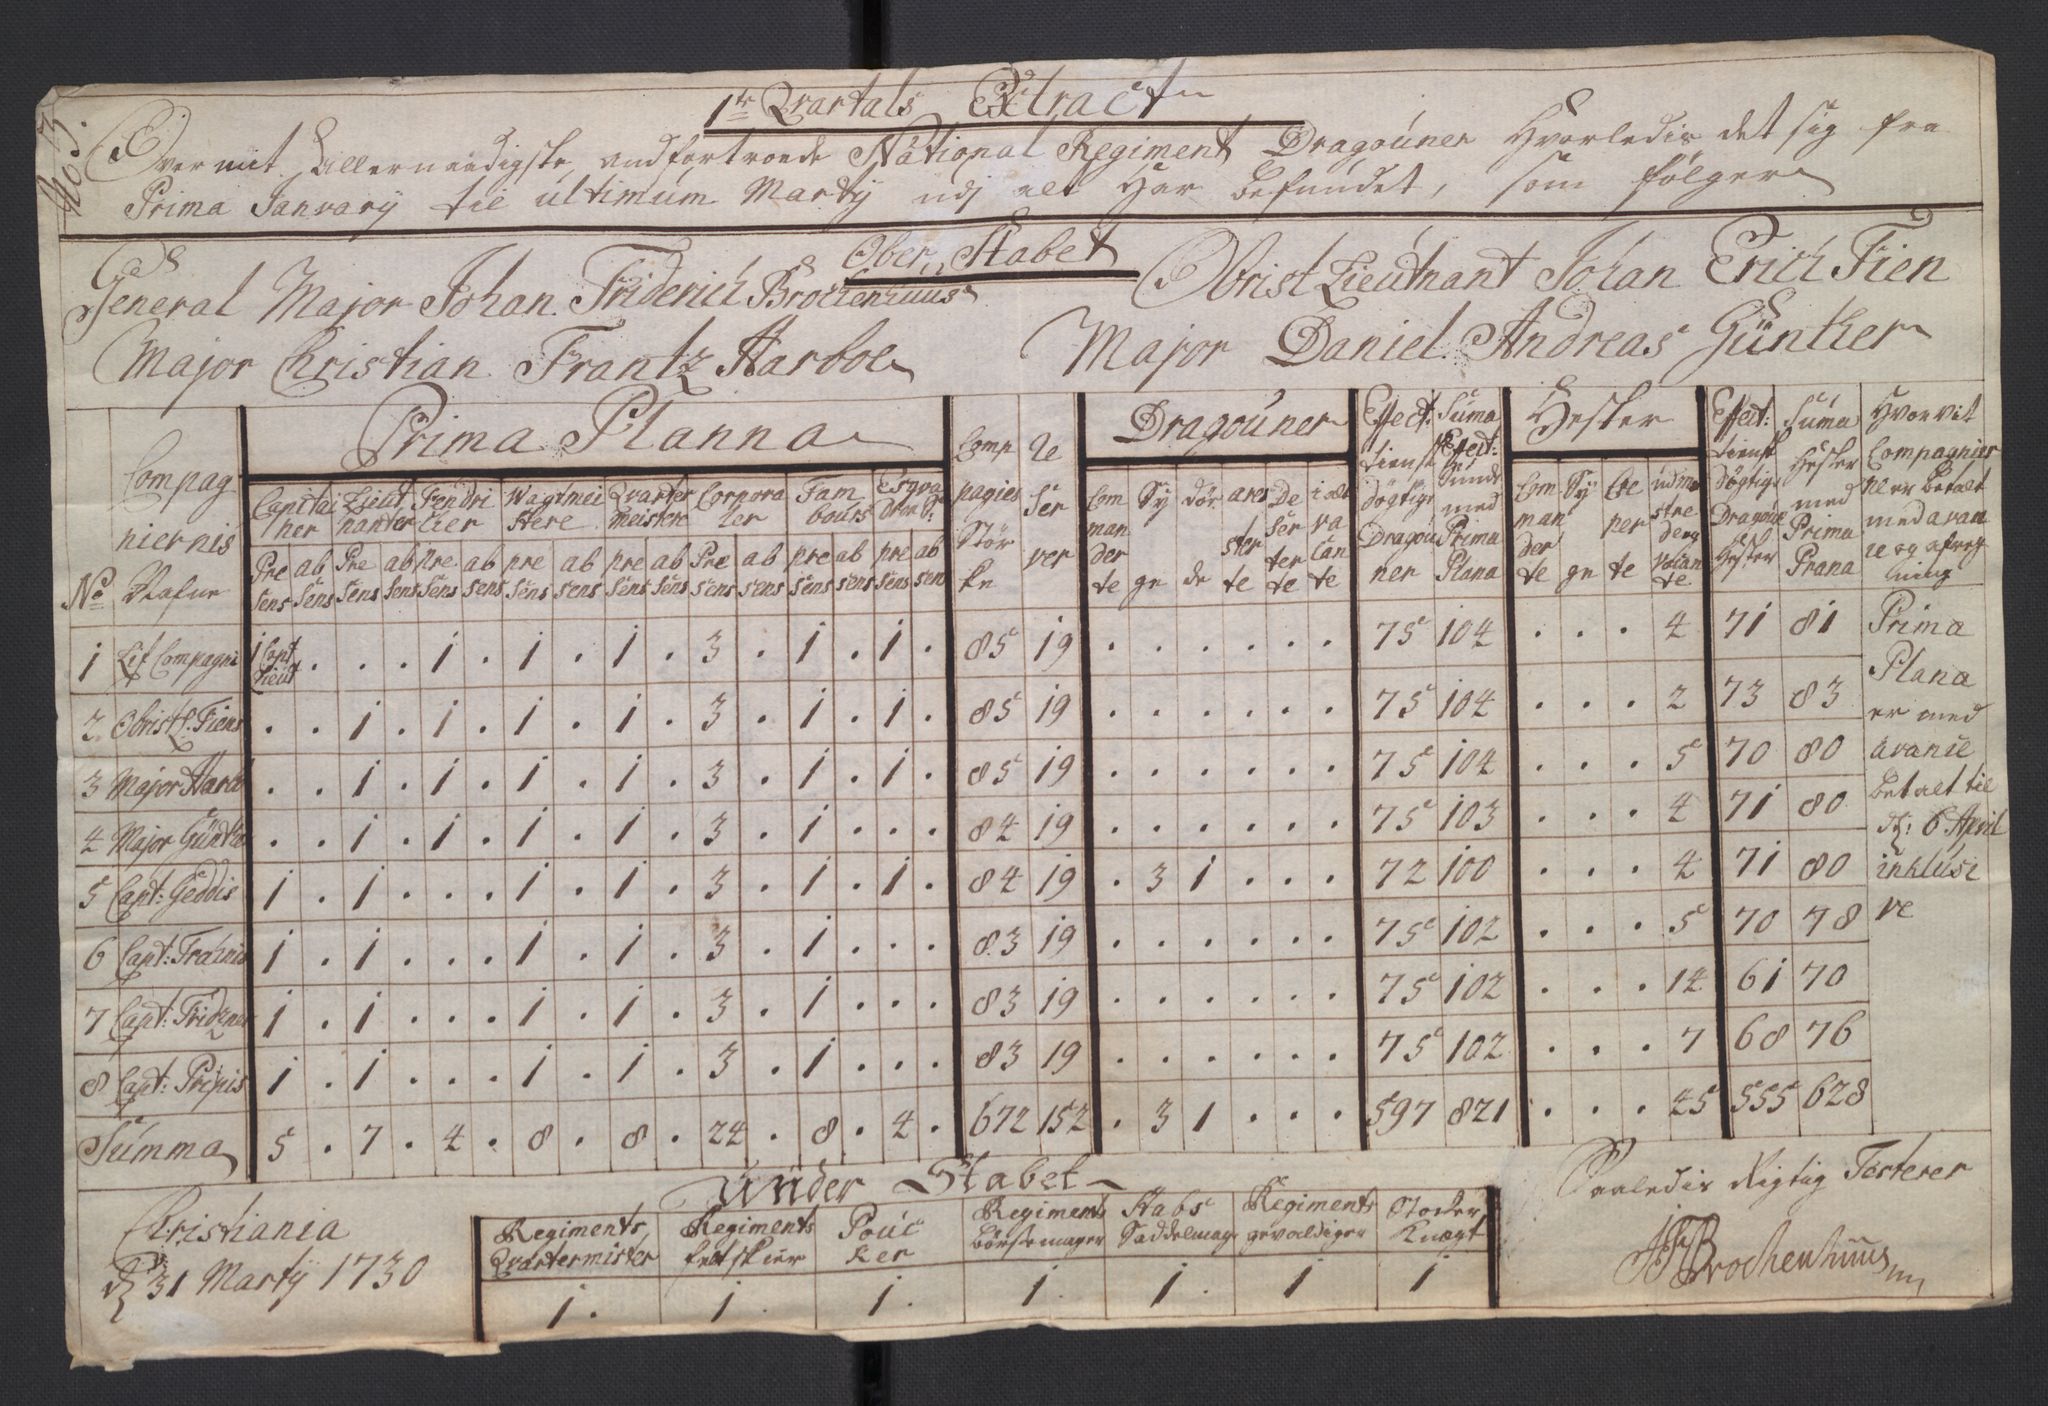 No 3.
1te Qvartals Extract
Over mit Allernaadigste andfortroede National Regiment Dragouner Hvorledis det sig fra
Prima Janvary til ultimum Marty udj alt Har befundet, som følger
Ober Stabet
General Major Johan Friderich Brockenhuus Obrist Lieutnant Johan Erich Fien
Major Christian Frantz Harboe Major Daniel Andreas Günther
No Compagniernis Nafne Prima Planna Comppagies Störke Reserver Dragouner Effect: tienst døgtige Dragouner Suma Effect: med Prima Plana Hester Effect: tienst døgtige Dragoun Hester Suma Hester med Prima Prana Hvorvit Compagnierne er betalt med avance og afregning
Capitaiher Lieutnanter Fendricher Wagtmeistere Qvartermeistere Corporaler Tambours Esqvadron
Presens absens Presens absens presens absens presens absens presens absens Presens absens presens absens presens absens
Commanderte Syge døde aresterte Deserterte vacante Commanderte Syge Creperte udmonstrede og vacante
1 Lif Compagni 1 Capt Lieut . . . 1 . 1 . 1 . 3 . 1 . 1 . 85 19 . . . . . . 75 104 . . . 4 71 81 Prima
2 Obristl: Fiens . . 1 . 1 . 1 . 1 . 3 . 1 . 1 . 85 19 . . . . . . 75 104 . . . 2 73 83 Plana er med
3 Major Harbo . . 1 . 1 . 1 . 1 . 3 . 1 . 1 . 85 19 . . . . . . 75 104 . . . 5 70 80 avance
4 Major Günth . . 1 . 1 . 1 . 1 . 3 . 1 . . . 84 19 . . . . . . 75 103 . . . 4 71 80 betalt til
5 Capt: Geddis 1 . 1 . . . 1 . 1 . 3 . 1 . 1 . 84 19 . 3 1 . . . 72 100 . . . 4 71 80 d: 6 April inklusi
6 Capt: 1 . 1 . . . 1 . 1 . 3 . 1 . . . 83 19 . . . . . . 75 102 . . . 5 70 78 ve
7 Capt: 1 . 1 . . . 1 . 1 . 3 . 1 . . . 83 19 . . . . . . 75 102 . . . 14 61 70
8 Capt: 1 . 1 . . . 1 . 1 . 3 . 1 . . . 83 19 . . . . . . 75 102 . . . 7 68 76
Summa 5 . 7 . 4 . 8 . 8 . 24 . 8 . 4 . 672 152 . 3 1 . . . 597 821 . . . 45 555 628
Under Stabet
Regiments Qvartermister Regiments feltskier Poucker Regiments börsemager Stabs Saddelmag Regiments gevaldiger Stocker Knægt
1 . 1 . 1 . 1 1 . 1 1
Christiania
d 31 Marty 1730
Saaledis Rigtig Testerer
JFBrochenhuus